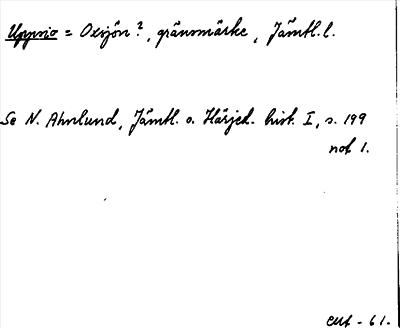 Uppsio = Oxsjön?, gränsmärke, Jämtl.l.
Se N. Ahnlund, Jämtl. o. Härjed. hist. I, s. 199
not 1.
- 61.